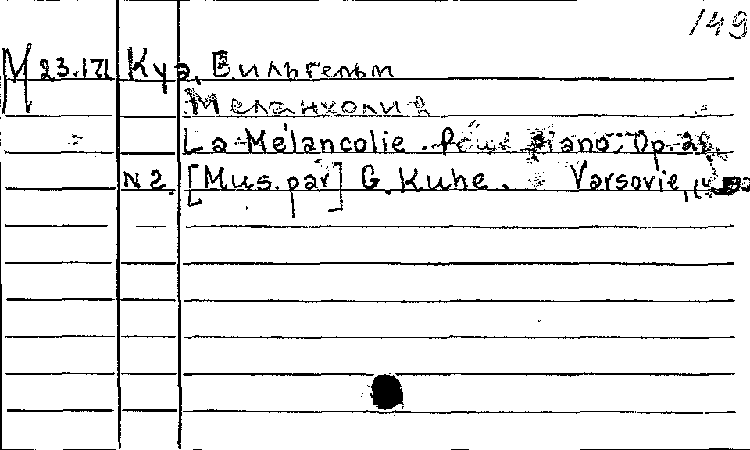 149
М 23.171 Куэ, Вильгельм
Меланхолия
La Mélancolie. Pour piano, Op.
N 2. [Mus. par] G. Kuhe. Varsovie,